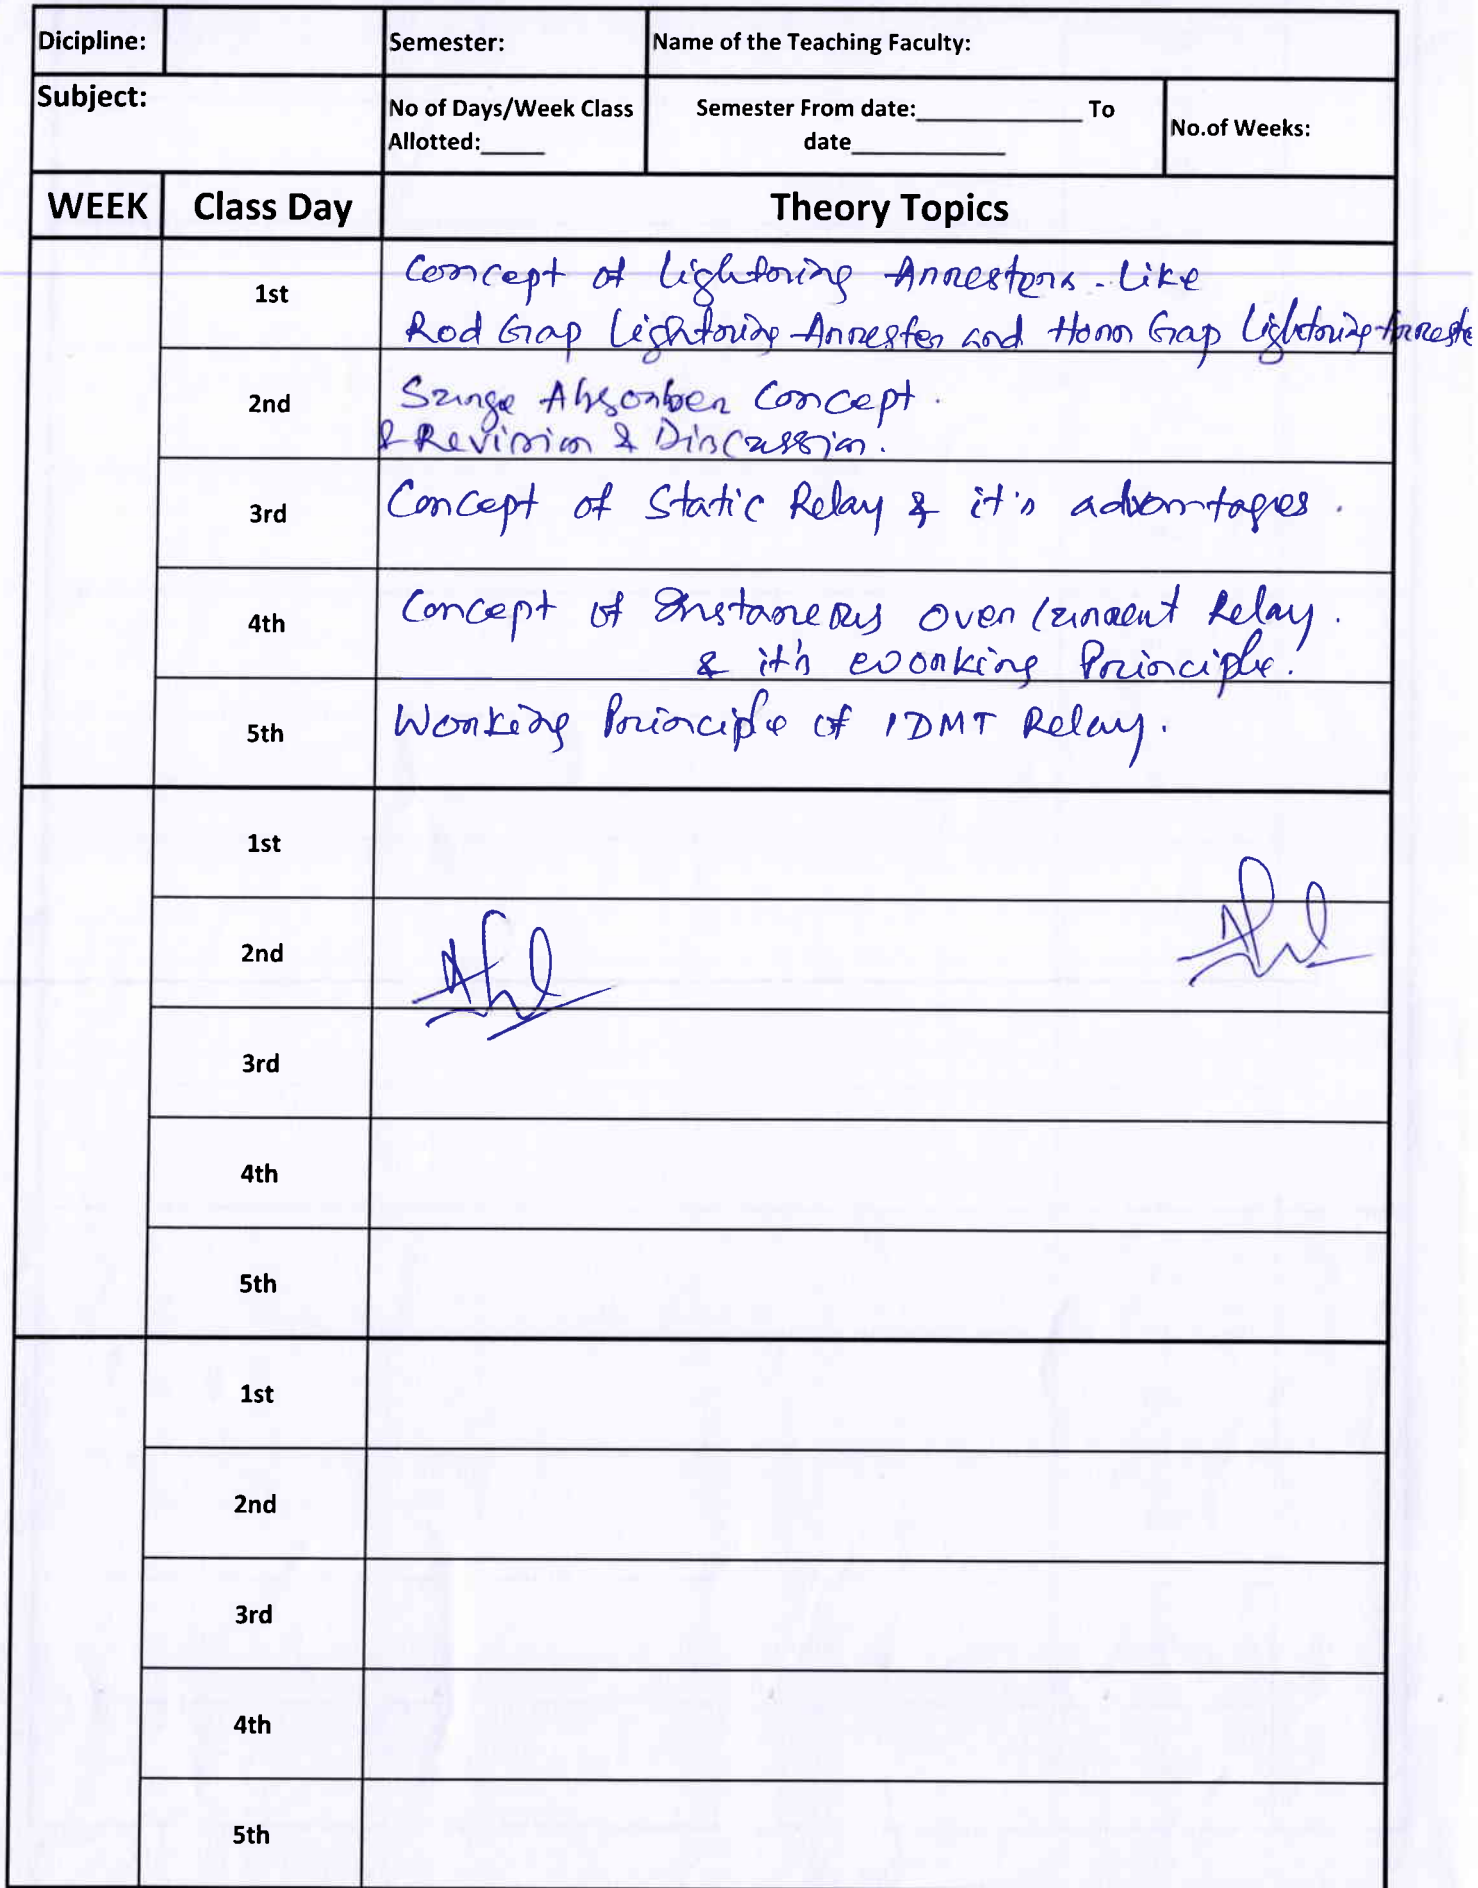 Dicipline:
Semester:
Name of the Teaching Faculty:
Subject:
No of Days/Week Class
Allotted:_____
Semester From date:_____________ To
date____________
No.of Weeks:
WEEK
Class Day
Theory Topics
1st
Concept of Lightning Arresters. Like
Rod Gap Lightning Arrester and Horn Gap Lightning Arreste
2nd
Surge Absorber Concept.
& Revision & Discussion.
3rd
Concept of Static Relay & it's advantages.
4th
Concept of Instaneous Over Current Relay.
& it's Working Principle.
5th
Working Principle of IDMT Relay.
1st
2nd
3rd
4th
5th
1st
2nd
3rd
4th
5th